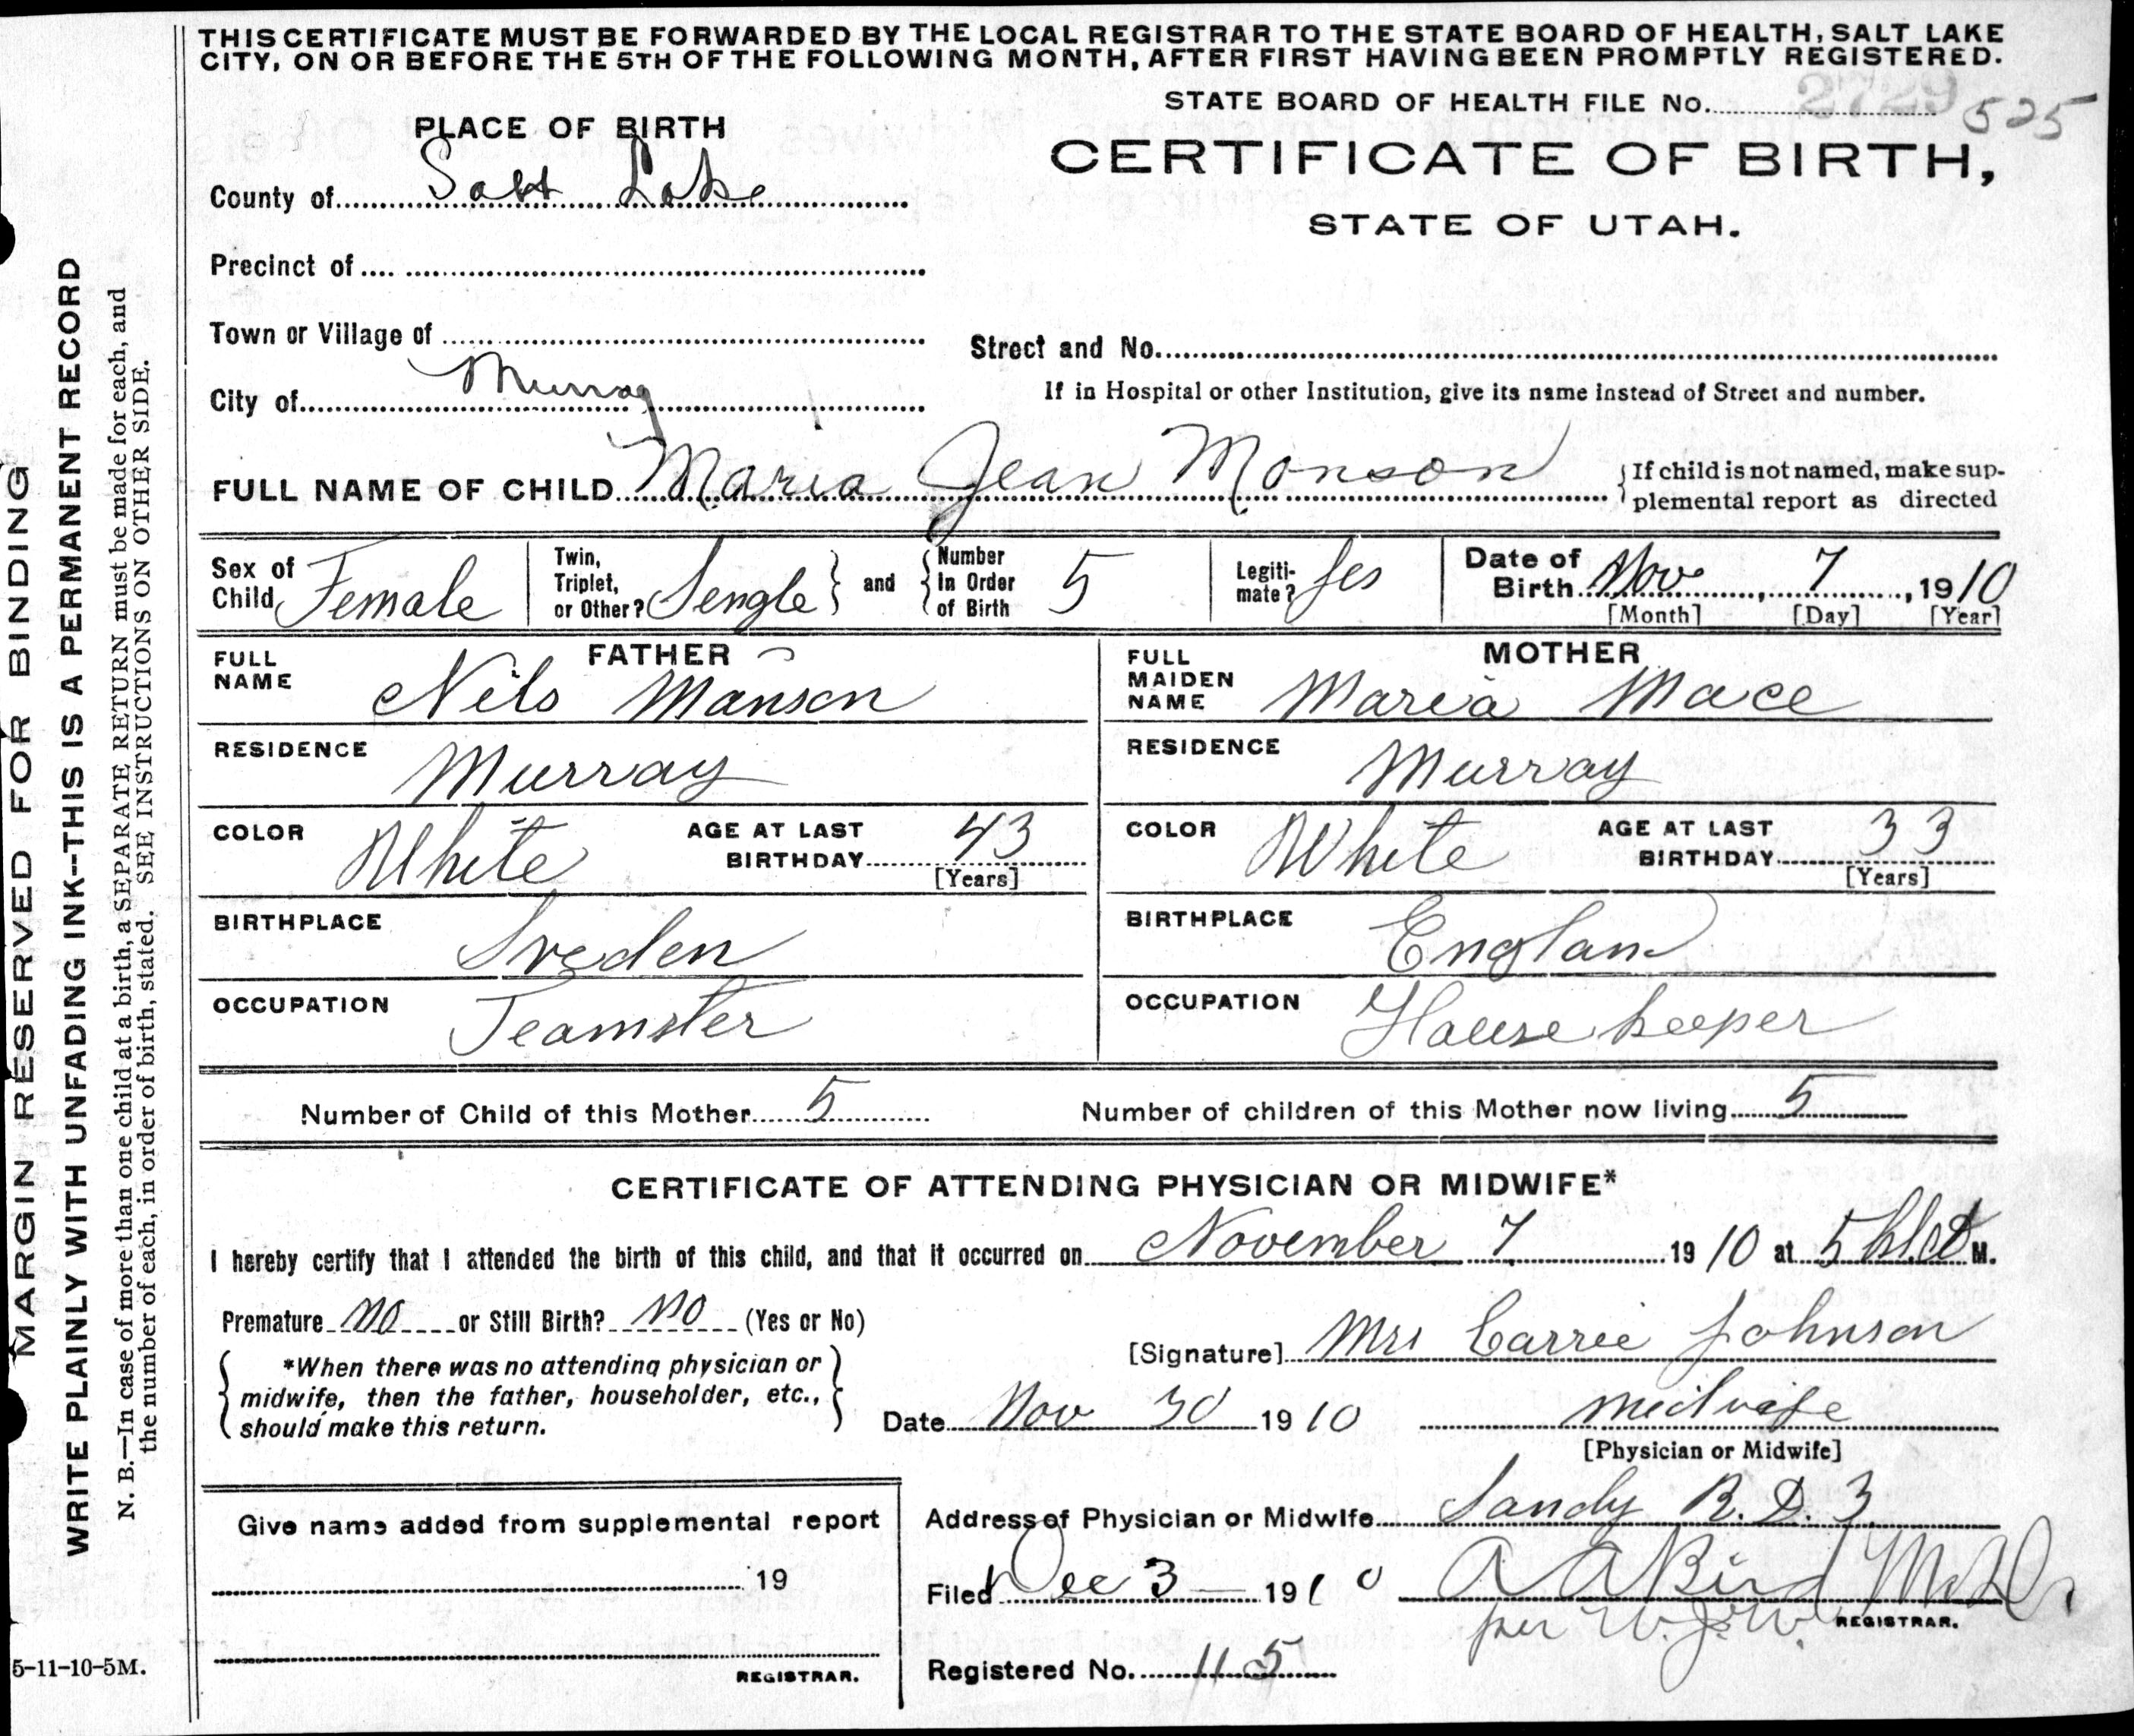 THIS CERTIFICATE MUST BE FORWARDED BY THE LOCAL REGISTRAR TO THE STATE BOARD OF HEALTH, SALT LAKE
CITY, ON OR BEFORE THE 5TH OF THE FOLLOWING MONTH, AFTER FIRST HAVING BEEN PROMPTLY REGISTERED.
STATE BOARD OF HEALTH FILE No. 2729 525
PLACE OF BIRTH
CERTIFICATE OF BIRTH,
STATE OF UTAH.
County of Salt Lake
Precinct of
Town or Village of
Street and No.
City of Murray
If in Hospital or other Institution, give its name instead of Street and number.
FULL NAME OF CHILD Maria Jean Monson
{ If child is not named, make sup-
plemental report as directed
Sex of Child Female
Twin, Triplet, or Other? Sengle } and { Number In Order of Birth 5
Legiti-mate? yes
Date of Birth Nov, 7, 1910
[Month] [Day] [Year]
FATHER
FULL NAME Nils Manson
RESIDENCE Murray
COLOR White AGE AT LAST BIRTHDAY 43
[Years]
BIRTHPLACE Sveden
OCCUPATION Teamster
MOTHER
FULL MAIDEN NAME Maria Mace
RESIDENCE Murray
COLOR White AGE AT LAST BIRTHDAY 33
[Years]
BIRTHPLACE Englan
OCCUPATION House keeper
Number of Child of this Mother 5
Number of children of this Mother now living 5
CERTIFICATE OF ATTENDING PHYSICIAN OR MIDWIFE*
I hereby certify that I attended the birth of this child, and that it occurred on November 7 1910 at 5 M.
Premature no or Still Birth? no (Yes or No)
{ *When there was no attending physician or
midwife, then the father, householder, etc.,
should make this return. }
[Signature] Mrs Carrie Johnson
Date Nov 30 1910 midwife
[Physician or Midwife]
Give name added from supplemental report
19
REGISTRAR.
Address of Physician or Midwife Sandy R.D. 3
Filed Dec 3 1910 A A Bird M.D.
per W.J.W. REGISTRAR.
Registered No. 115
MARGIN RESERVED FOR BINDING
WRITE PLAINLY WITH UNFADING INK--THIS IS A PERMANENT RECORD
N. B.—In case of more than one child at a birth, a SEPARATE RETURN must be made for each, and
the number of each, in order of birth, stated. SEE INSTRUCTIONS ON OTHER SIDE.
5-11-10-5M.